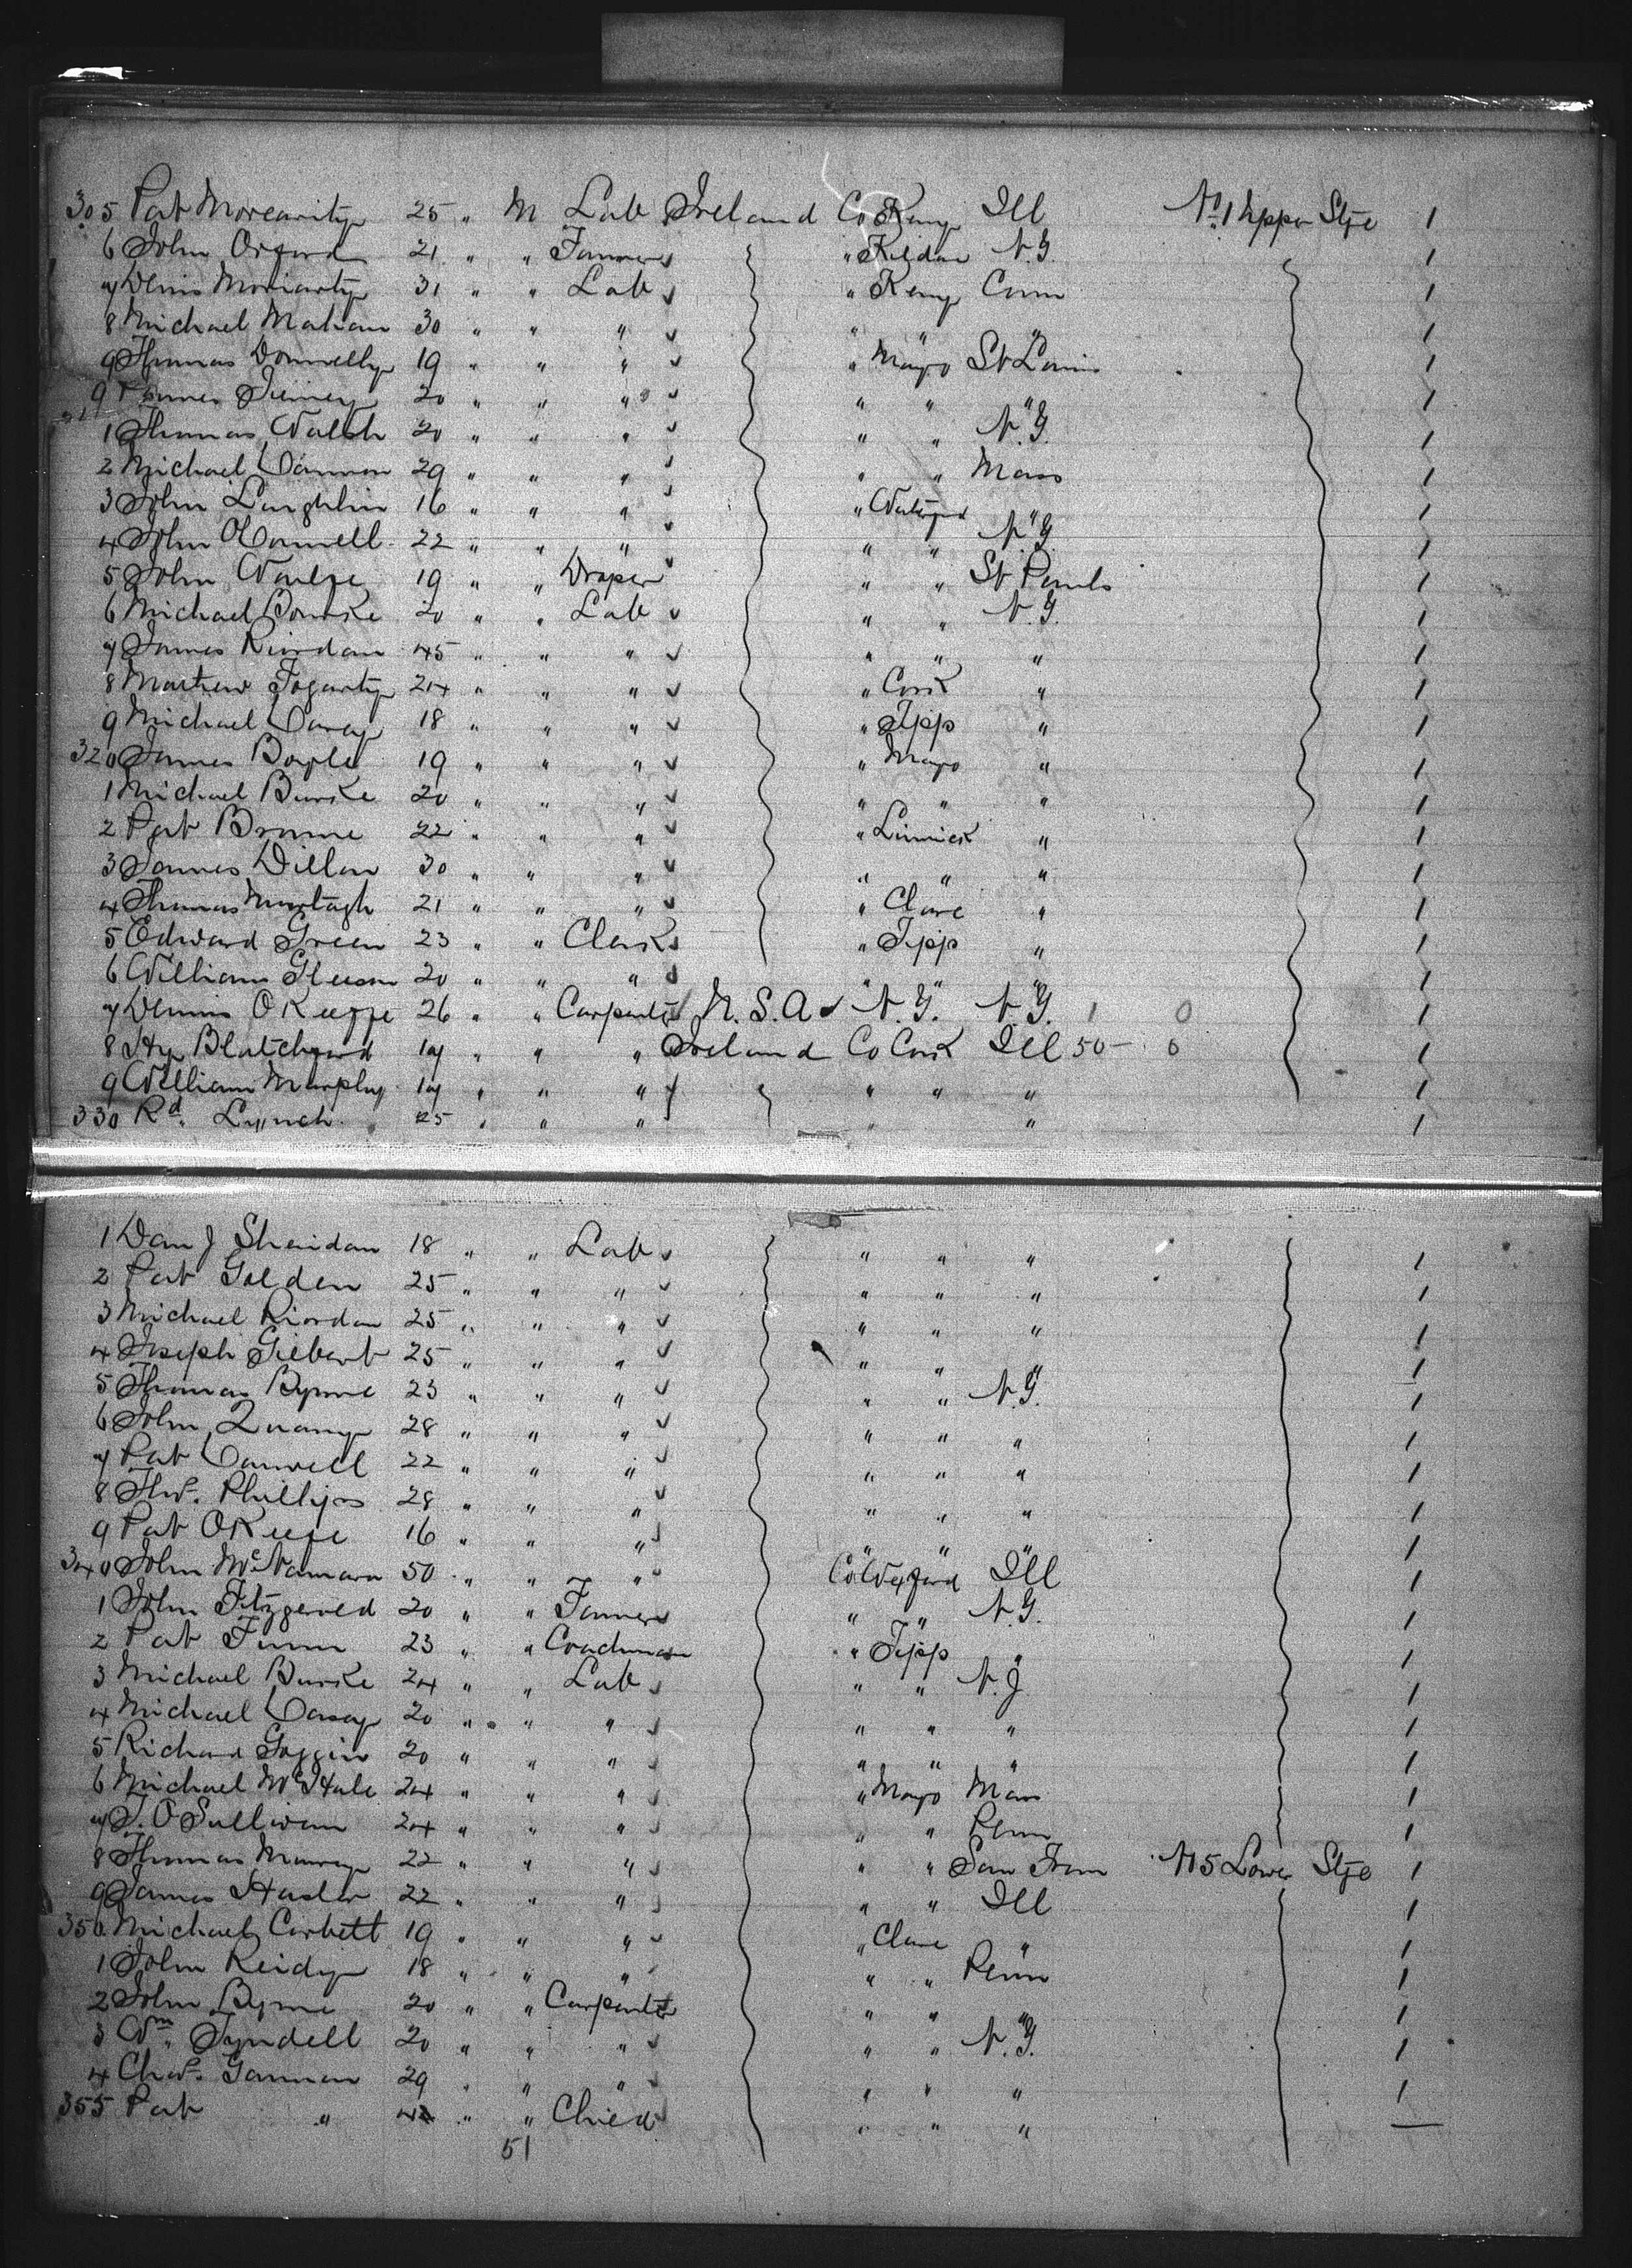 305 Pat Morearity 25 " M Lab Ireland Co Kerry Ill No 1 Upper Stge 1
6 John Orford 21 " " Farmer " Kildare N.Y. 1
7 Denis Moriarty 31 " " Lab " Kerry Conn 1
8 Michael Mahan 30 " " " " " " 1
9 Thomas Donnelly 19 " " " " Mayo St Louis 1
9 James Tierney 20 " " " " " " 1
1 Thomas Walsh 20 " " " " " N.Y. 1
2 Michael Cannon 29 " " " " " Mass 1
3 John Laughlin 16 " " " " Waterford " 1
4 John OConnell 22 " " " " " N.Y. 1
5 John Waulse 19 " " Draper " " St Pauls 1
6 Michael Bourke 20 " " Lab " " N.Y. 1
7 James Riordan 45 " " " " " " 1
8 Mathew Fogarty 24 " " " " Cork " 1
9 Michael Carey 18 " " " " Tipp " 1
320 James Boyle 19 " " " " Mayo " 1
1 Michael Burke 20 " " " " " " 1
2 Pat Browne 22 " " " " Limrick " 1
3 James Dillon 30 " " " " " " 1
4 Thomas Murtagh 21 " " " " Clare " 1
5 Edward Green 23 " " Clerk " Tipp " 1
6 William Gleeson 20 " " " " " " 1
7 Dennis OKeeffe 26 " " Carpenter U.S.A N.Y. N.Y. 1 0 1
8 Hy Blatchford 17 " " " Ireland Co Cork Ill 50 - 0 1
9 William Murphy 17 " " " " " " 1
330 Rd. Lynch 25 " " " " " 1
1 Dan J Sheridan 18 " " Lab " " " 1
2 Pat Golden 25 " " " " " " 1
3 Michael Riordan 25 " " " " " " 1
4 Joseph Gilbert 25 " " " " " " 1
5 Thomas Byrne 23 " " " " " N.Y. 1
6 John Quany 28 " " " " " " 1
7 Pat Canwell 22 " " " " " " 1
8 Thos. Phillips 28 " " " " " " 1
9 Pat OKeefe 16 " " " " " " 1
340 John McNamara 50 " " " Co Wexford Ill 1
1 John Fitzgereld 20 " " Farmer " " N.Y. 1
2 Pat Finn 23 " " Coachman " Tipp " 1
3 Michael Burke 24 " " Lab " " N.J. 1
4 Michael Casey 20 " " " " " " 1
5 Richard Goggin 20 " " " " " " 1
6 Michael McHale 24 " " " " Mayo Mass 1
7 T. OSullivan 24 " " " " " Penn 1
8 Thomas Murray 22 " " " " " San Fran No 5 Lower Stge 1
9 James Haslar 22 " " " " " Ill 1
350 Michael Corbett 19 " " " " Clare " 1
1 John Reidy 18 " " " " " Penn 1
2 John Byrne 20 " " Carpenter " " " 1
3 Wm Tyndell 20 " " " " " N.Y. 1
4 Chas. Gannon 29 " " " " " " 1
355 Pat " " " Child " " " —
51